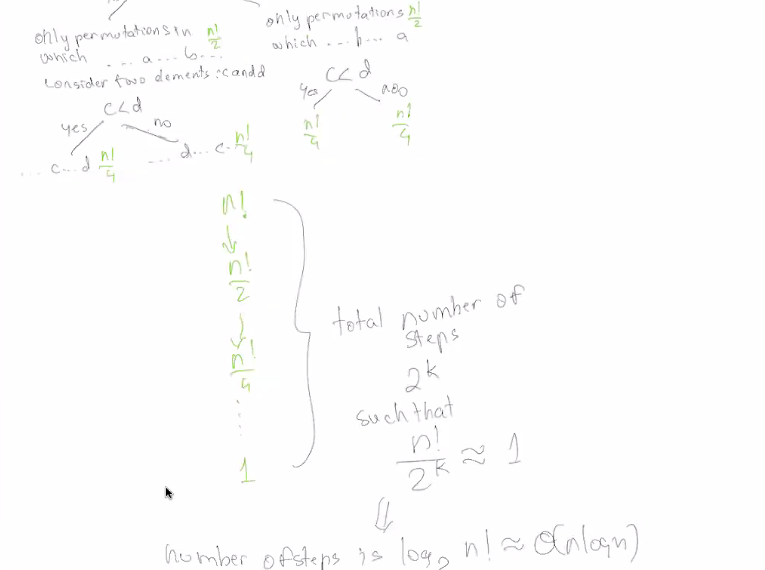 only permutations in n!/2
which ... a... b...
only permutations n!/2
which ... b... a
consider two elements: c and d
c<d
yes no
... c...d n!/4
.... d... c. n!/4
c< d
yes no
n!/4 n!/4
n!
↓
n!/2
↓
n!/4
1
total number of
steps
2^k
such that
n!/2^k ≈ 1
⇓
number of steps is log₂ n! ≈ O(nlogn)